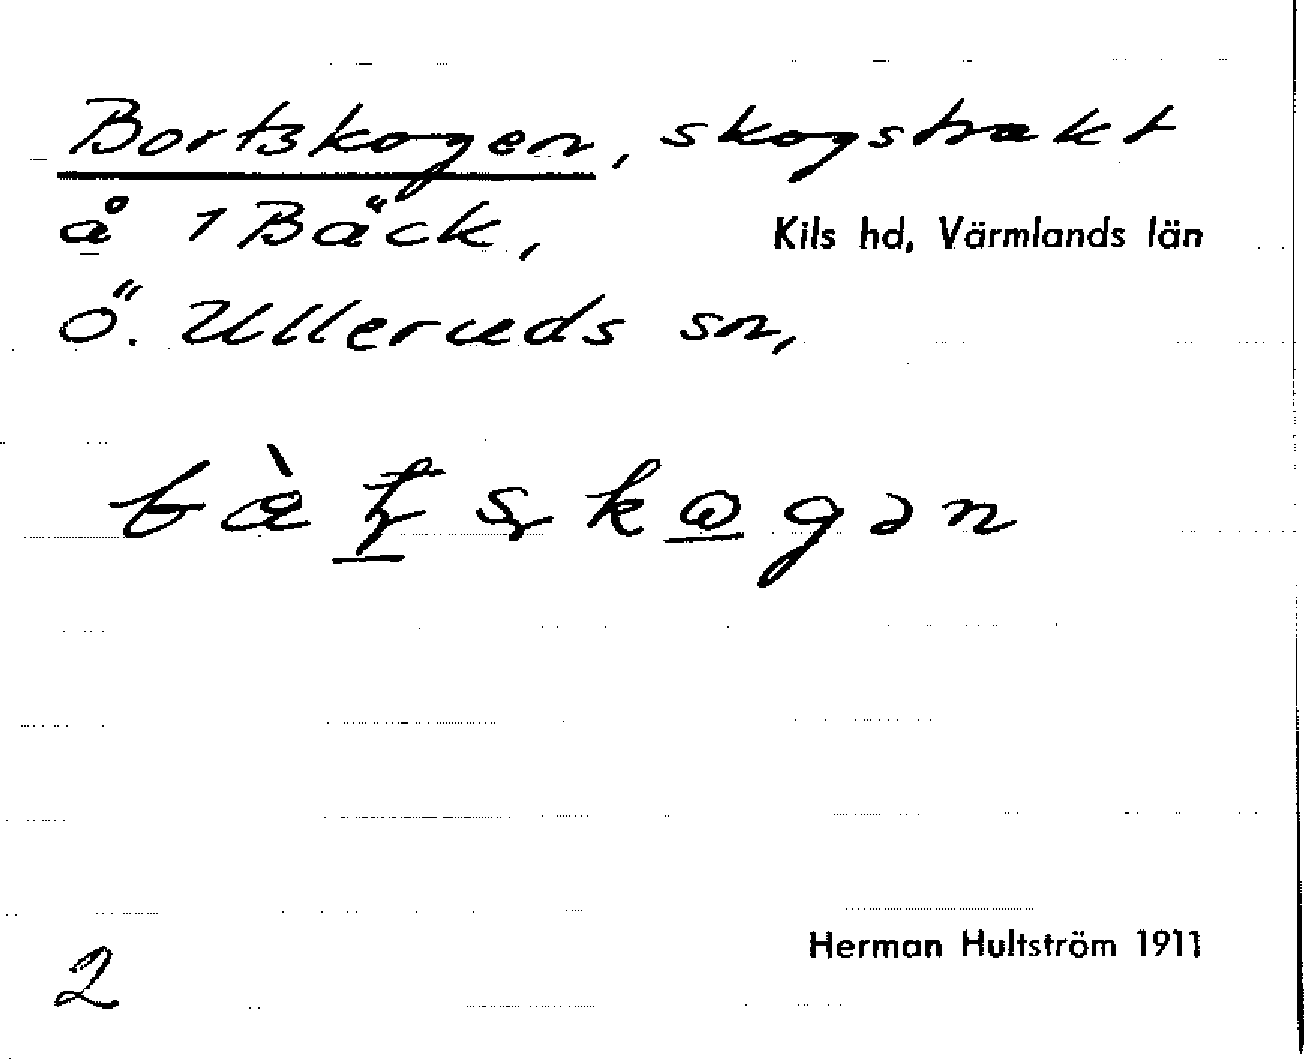 Bortskogen, skogstrakt
å 1 Bäck,
Kils hd, Värmlands län
Ö. Ulleruds sn,
Herman Hultström 1911
2